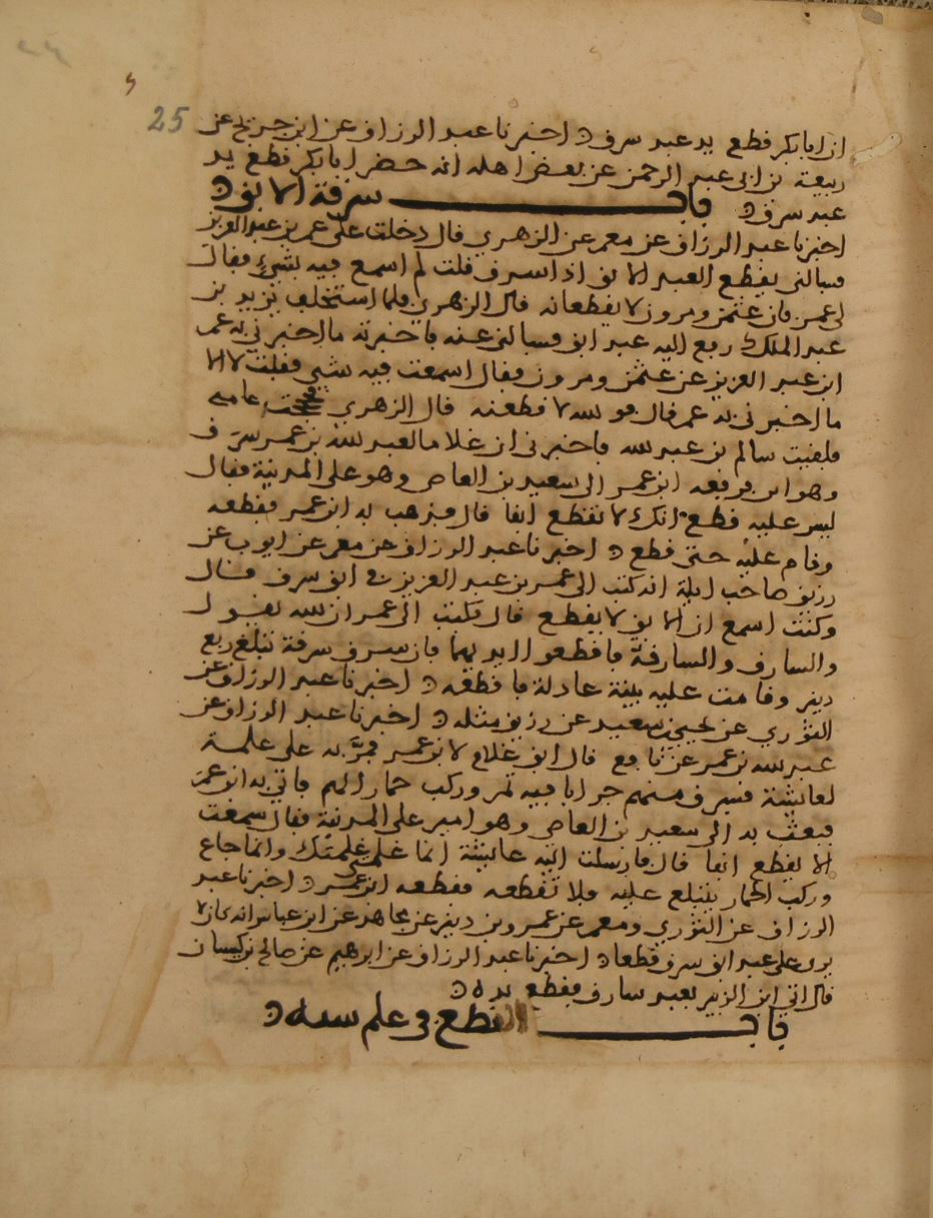 25
ان ابا بكر قطع يد عبد سرق اخبرنا عبد الرزاق عن ابن جريج عن
ربيعة بن ابي عبد الرحمن عن بعض اهله انه حضر ابا بكر قطع يد
عبد سرق باب سرقة الابق
اخبرنا عبد الرزاق عن معمر عن الزهري قال دخلت على عمر بن عبد العزيز
فسالني يقطع العبد الابق اذا سرق قلت لم اسمع فيه بشيء فقال
لي عمر فان عثمن ومرون لا يقطعانه قال الزهري فلما استخلف يزيد بن
عبد الملك رفع اليه عبد ابق فسالني عنه فاخبرته ما اخبرني به عمر
ابن عبد العزيز عن عثمن ومرون فقال اسمعت فيه بشي فقلت لا الا
ما اخبرني به عمر قال فو لله لا قطعنه قال الزهري فحججت عامي
فلقيت سالم بن عبد لله فاخبرني ان غلاما لعبد لله بن عمر سرق
وهو ابق فرفعه ابن عمر الى سعيد بن العاص وهو على المدينة فقال
ليس عليه قطع انك لا تقطع ابقا قال فذهب به ابن عمر فقطعه
وقام عليه حتى قطع اخبرنا عبد الرزاق عن معمر عن ايوب عن
رزيق صاحب ايلة انه كتب الى عمر بن عبد العزيز في ابق سرق قال
وكنت اسمع ان الابق لا يقطع قال فكتب الى عمر ان لله يقول
والسارق والسارقة فاقطعوا ايديهما فان سرق سرقة تبلغ ربع
دينر وقامت عليه بينة عادلة فاقطعه اخبرنا عبد الرزاق عن
الثوري عن يحيى بن سعيد عن رزيق مثله اخبرنا عبد الرزاق عن
عبد لله بن عمر عن نافع قال ابق غلام لابن عمر فمر به على غلمة
لعائشة فسرق منهم جرابا فيه تمر وركب حمارا لهم فاتي به ابن عمر
فبعث به الى سعيد بن العاص وهو امير على المدينة فقال سمعت
الا يقطع ابقا قال فارسلت اليه عائشة انما غلمتي غلمتك وانما جاع
وركب الحمار يتبلغ عليه فلا تقطعه فقطعه ابن عمر اخبرنا عبد
الرزاق عن الثوري ومعمر عن عمرو بن دينر عن مجاهد عن ابن عباس انه كان لا
يرى على عبد ابق سرق قطعا اخبرنا عبد الرزاق عن ابرهيم عن صالح بن كيسان
قال اتي ابن الزبير بعبد سارق فقطع يده
باب القطع في عام سنه